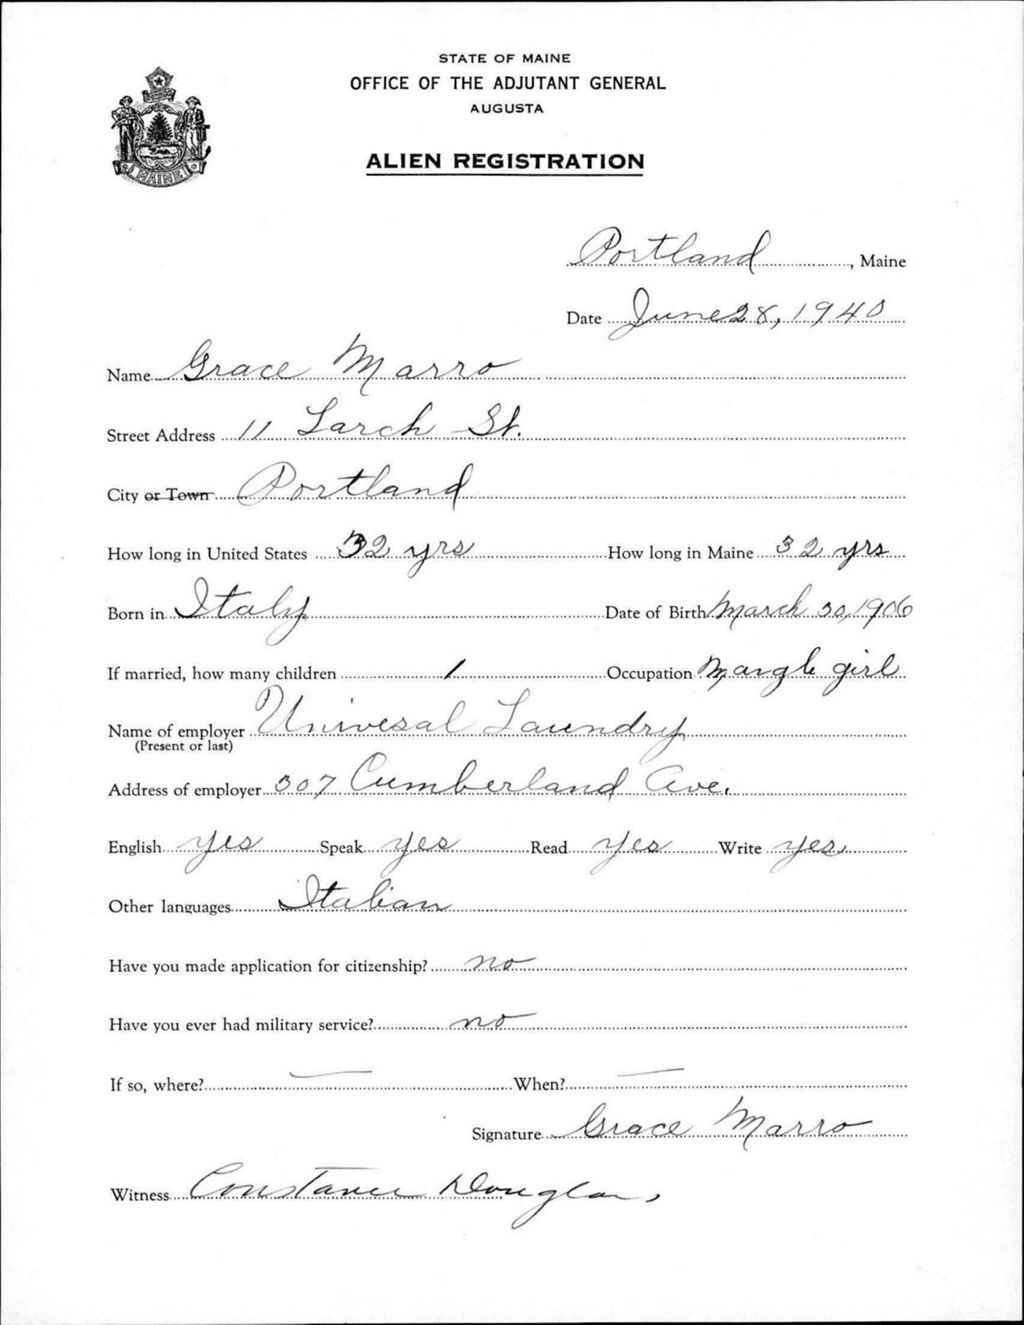 STATE OF MAINE
OFFICE OF THE ADJUTANT GENERAL
AUGUSTA
ALIEN REGISTRATION
MAINE
Portland, Maine
Date June 28, 1940
Name Grace Marro
Street Address 11 Larch St.
City or Town Portland
How long in United States 32 yrs How long in Maine 32 yrs
Born in Italy Date of Birth March 30, 1906
If married, how many children 1 Occupation Mangle girl
Name of employer Univesal Laundry
(Present or last)
Address of employer 307 Cumberland Ave.
English yes Speak yes Read yes Write yes
Other languages Italian
Have you made application for citizenship? no
Have you ever had military service? no
If so, where? — When? —
Signature Grace Marro
Witness Constance Douglas